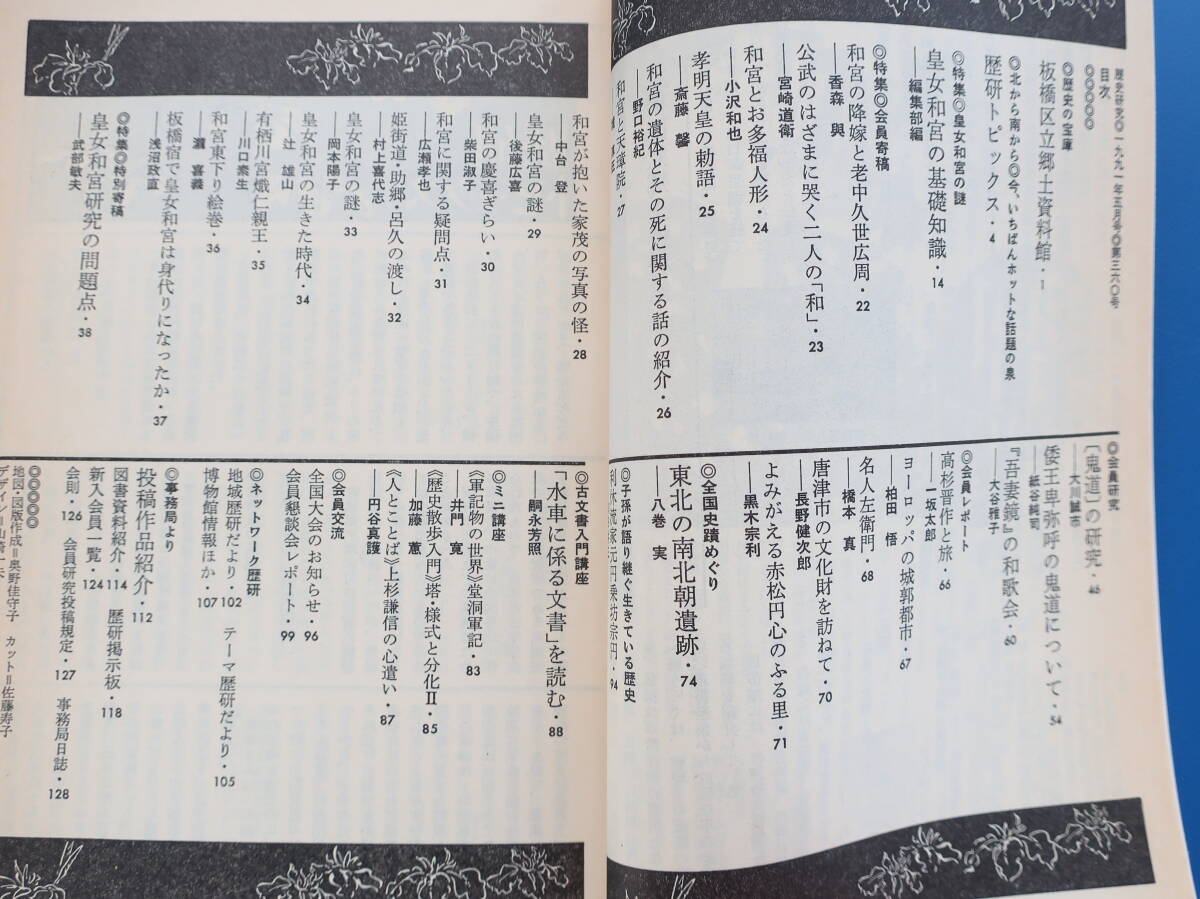 歴史研究◎一九九一年五月号◎第三六〇号
目次
◎◎◎◎◎
◎歴史の宝庫
板橋区立郷土資料館・1
◎北から南から◎今、いちばんホットな話題の泉
歴研トピックス・4
◎特集◎皇女和宮の謎
皇女和宮の基礎知識・14
——編集部編
◎特集◎会員寄稿
和宮の降嫁と老中久世広周・22
——香森 與
公武のはざまに哭く二人の「和」・23
——宮崎道衛
和宮とお多福人形・24
——小沢和也
孝明天皇の勅語・25
——斎藤 馨
和宮の遺体とその死に関する話の紹介・26
——野口裕紀
和宮と天璋院・27
和宮が抱いた家茂の写真の怪・28
——中台 登
皇女和宮の謎・29
——後藤広喜
和宮の慶喜ぎらい・30
——柴田淑子
和宮に関する疑問点・31
——広瀬孝也
姫街道・助郷・呂久の渡し・32
——村上喜代志
皇女和宮の謎・33
——岡本陽子
皇女和宮の生きた時代・34
——辻 雄山
有栖川宮熾仁親王・35
——川口素生
和宮東下り絵巻・36
——灘 喜義
板橋宿で皇女和宮は身代りになったか・37
——浅沼政直
◎特集◎特別寄稿
皇女和宮研究の問題点・38
——武部敏夫
◎会員研究
〔鬼道〕の研究・46
——大川誠市
倭王卑弥呼の鬼道について・54
——紙谷純司
『吾妻鏡』の和歌会・60
——大谷雅子
◎会員レポート
高杉晋作と旅・66
——一坂太郎
ヨーロッパの城郭都市・67
——柏田 悟
名人左衛門・68
——橋本 真
唐津市の文化財を訪ねて・70
——長野健次郎
よみがえる赤松円心のふる里・71
——黒木宗利
◎全国史蹟めぐり
東北の南北朝遺跡・74
——八巻 実
◎子孫が語り継ぐ生きている歴史
利休流家元円乗坊宗円・94
◎古文書入門講座
「水車に係る文書」を読む・88
——嗣永芳照
◎ミニ講座
《軍記物の世界》堂洞軍記・83
——井門 寛
《歴史散歩入門》塔・様式と分化Ⅱ・85
——加藤 蕙
《人とことば》上杉謙信の心遣い・87
——円谷真護
◎会員交流
全国大会のお知らせ・96
会員懇談会レポート・99
◎ネットワーク歴研
地域歴研だより・102 テーマ歴研だより・105
博物館情報ほか・107
◎事務局より
投稿作品紹介・112
図書資料紹介・114 歴研掲示板・118
新入会員一覧・124
会則・126 会員研究投稿規定・127 事務局日誌・128
◎◎◎◎◎
地図・図版作成＝奥野佳守子 カット＝佐藤寿子